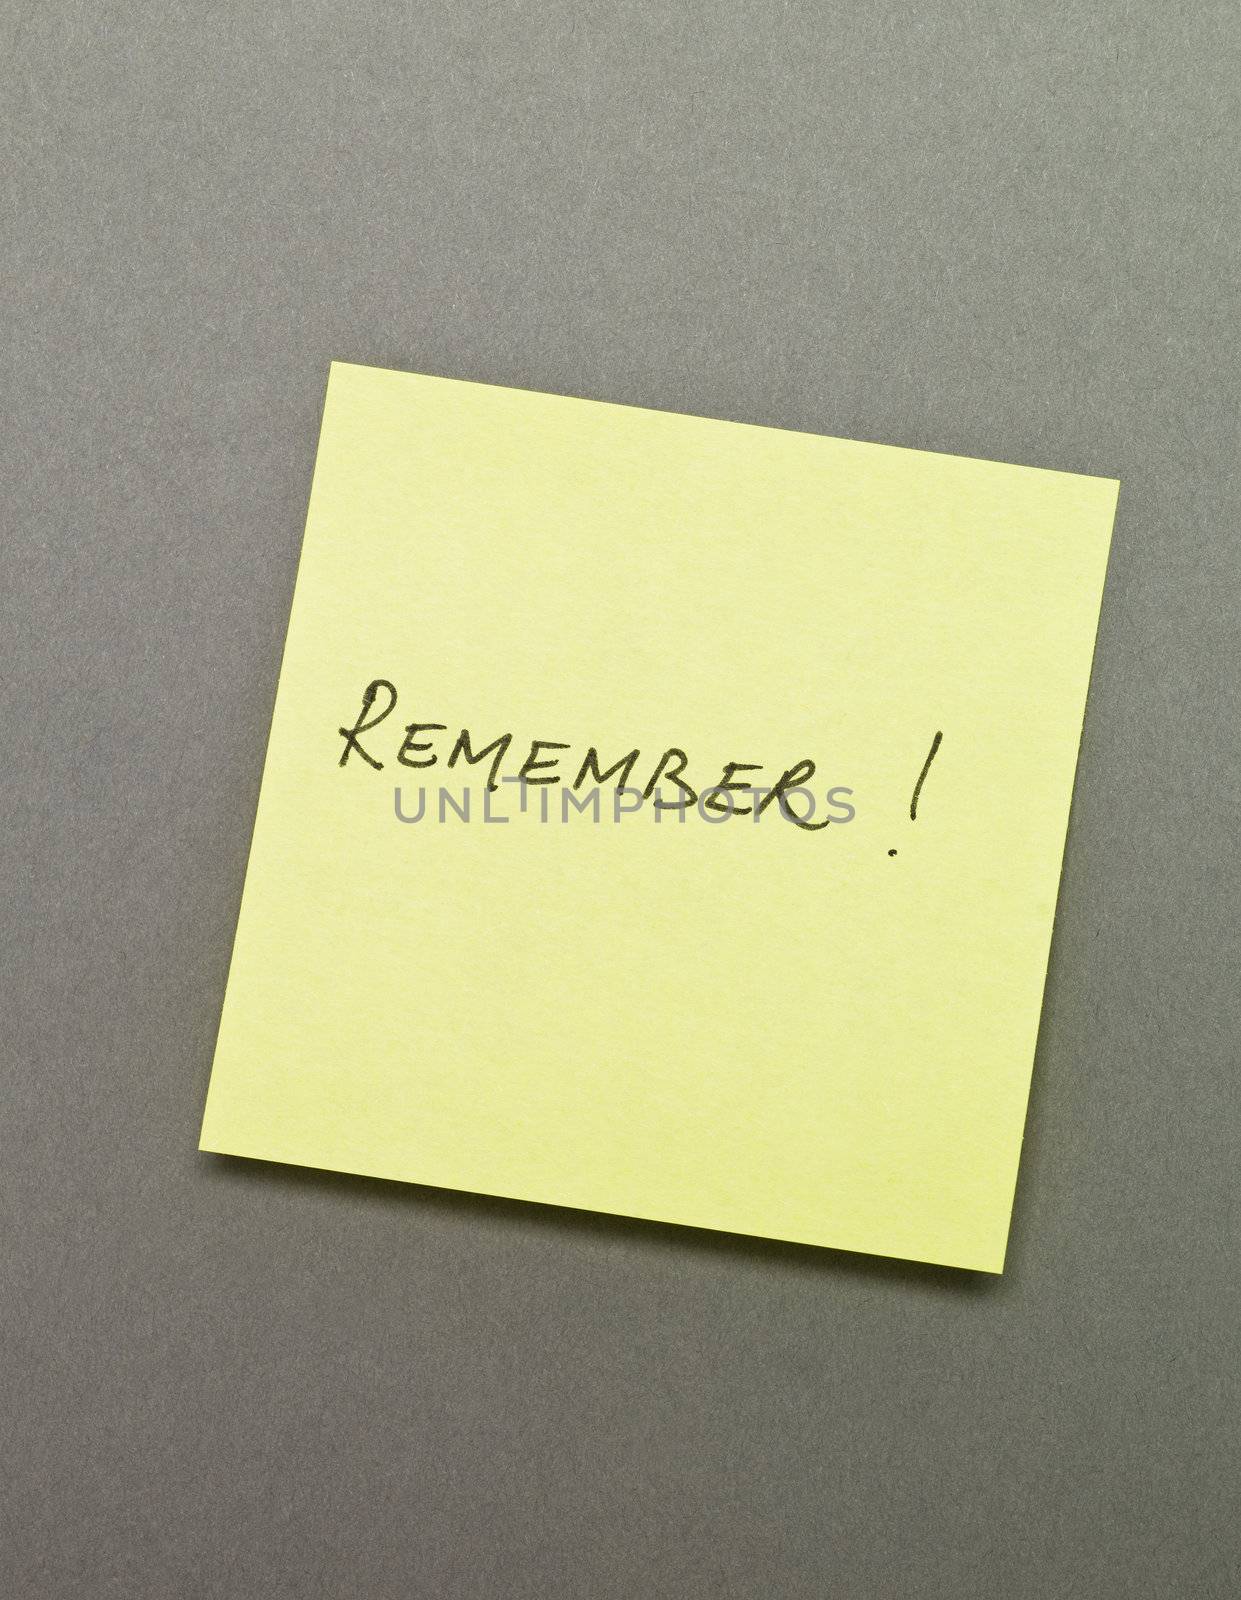 REMEMBER !
UNLTIMPHOTOS